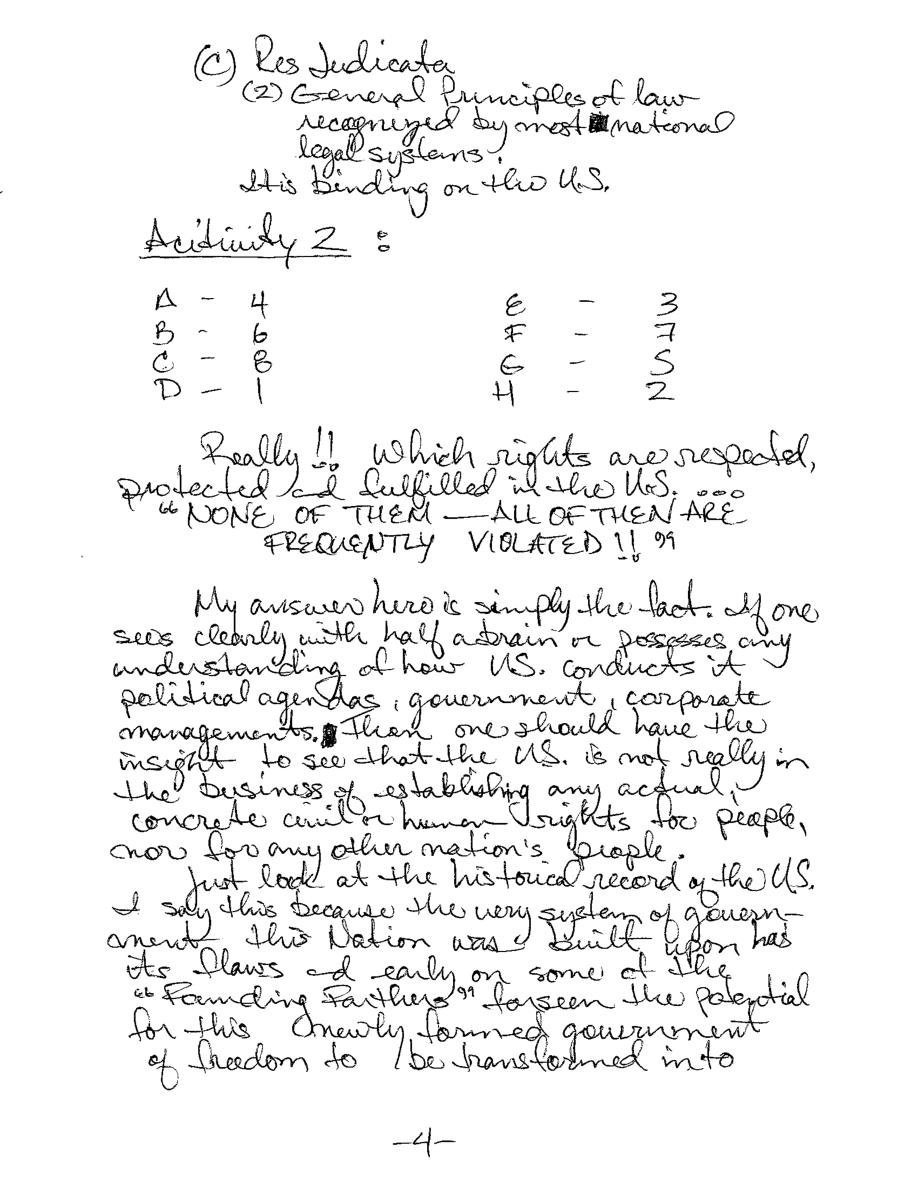 (C) Res Judicata
(2) General Principles of law
recognized by most national
legal systems.
It is binding on the U.S.
Acitivity 2 :
A - 4 E - 3
B - 6 F - 7
C - 8 G - 5
D - 1 H - 2
Really!! Which rights are respected,
protected and fulfilled in the U.S. ...
"NONE OF THEM — ALL OF THEN ARE
FREQUENTLY VIOLATED!!"
My answer here is simply the fact. If one
sees clearly with half a brain or possesses any
understanding of how US. conducts it
political agendas, government, corporate
managements. Then one should have the
insight to see that the US. is not really in
the business of establishing any actual,
concrete civil or human rights for people,
nor for any other nation's people.
Just look at the historical record of the US.
I say this because the very system of govern-
ment this Nation was built upon has
its flaws and early on some of the
"Founding Farthers" forseen the potential
for this newly formed government
of freedom to be transformed into
-4-